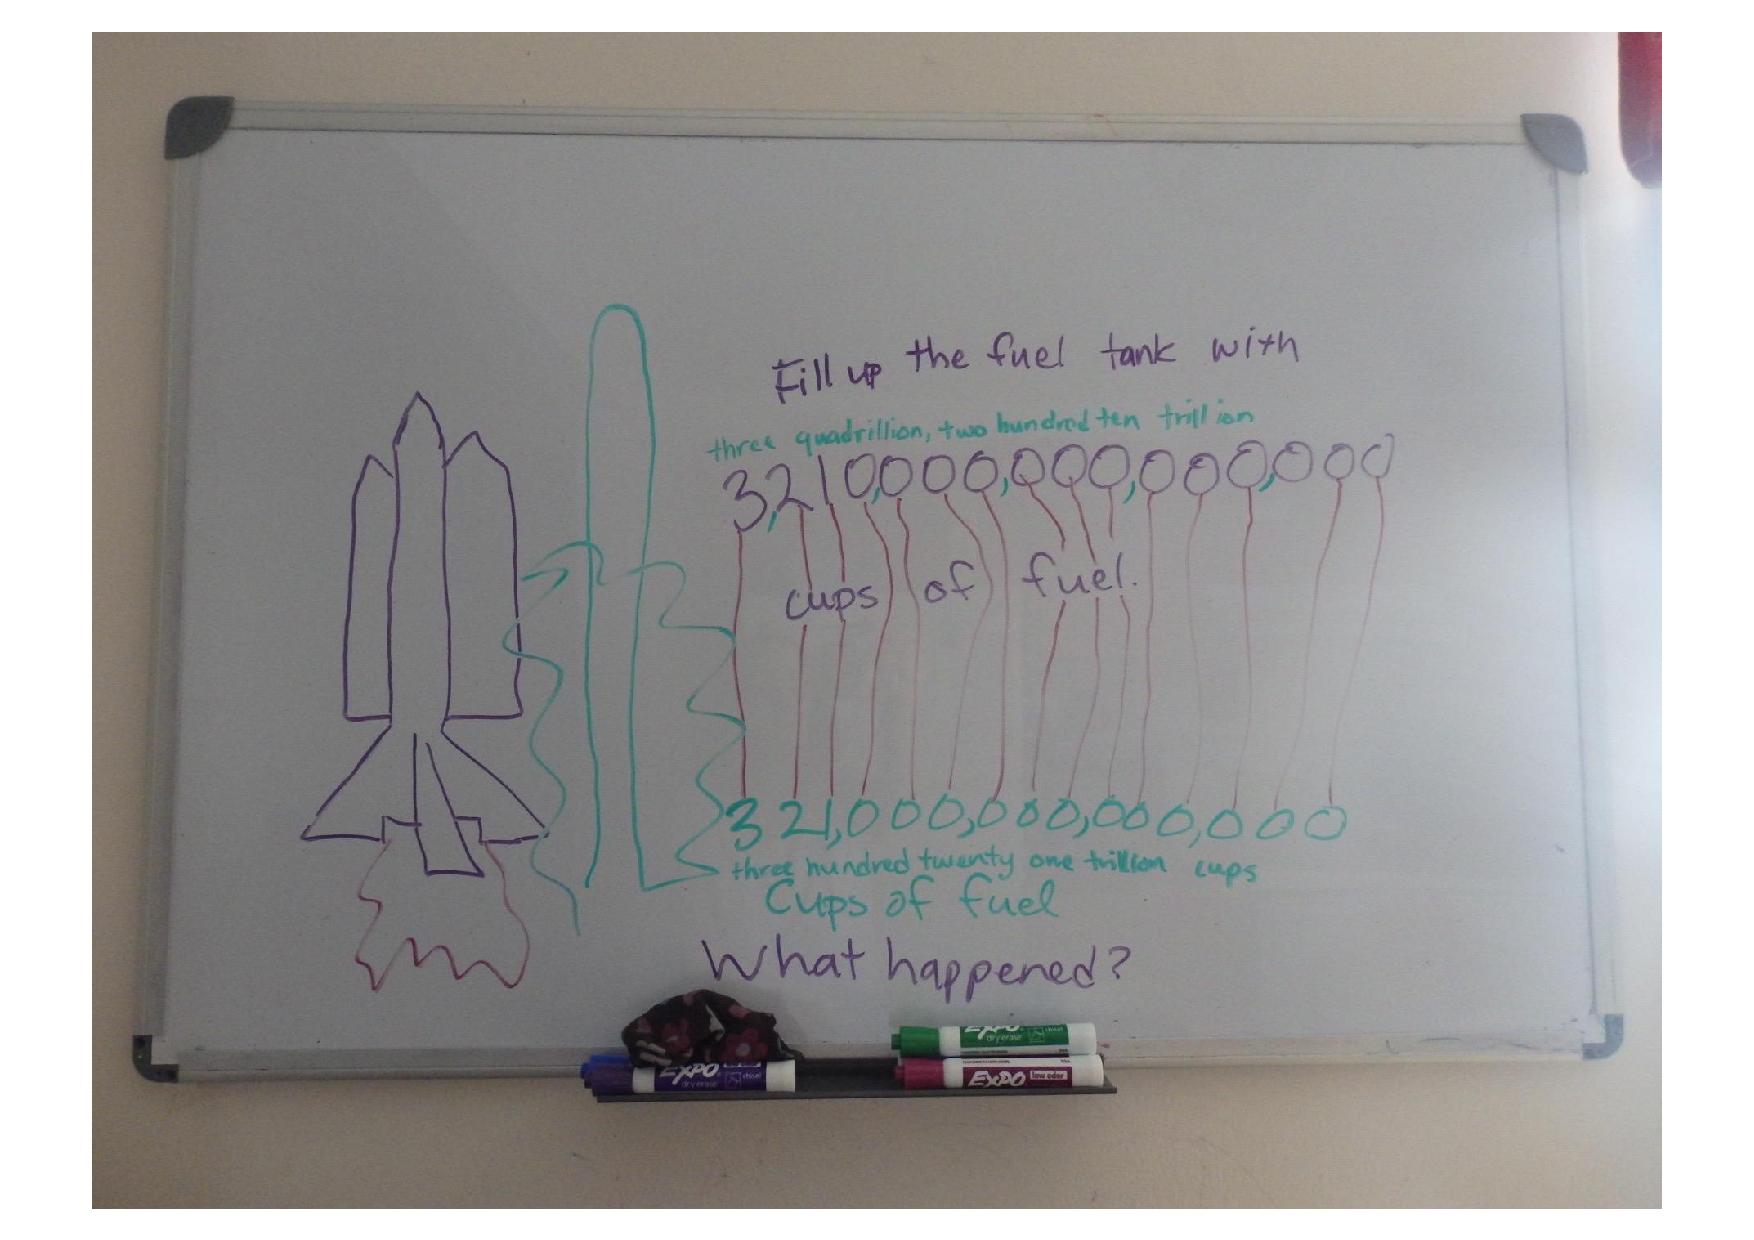 Fill up the fuel tank with
three quadrillion, two hundred ten trillion
3,210,000,000,000,000
cups of fuel.
321,000,000,000,000
three hundred twenty one trillion cups
Cups of fuel
What happened?
EXPO
dry erase
chisel
EXPO
dry erase
chisel
EXPO
low odor